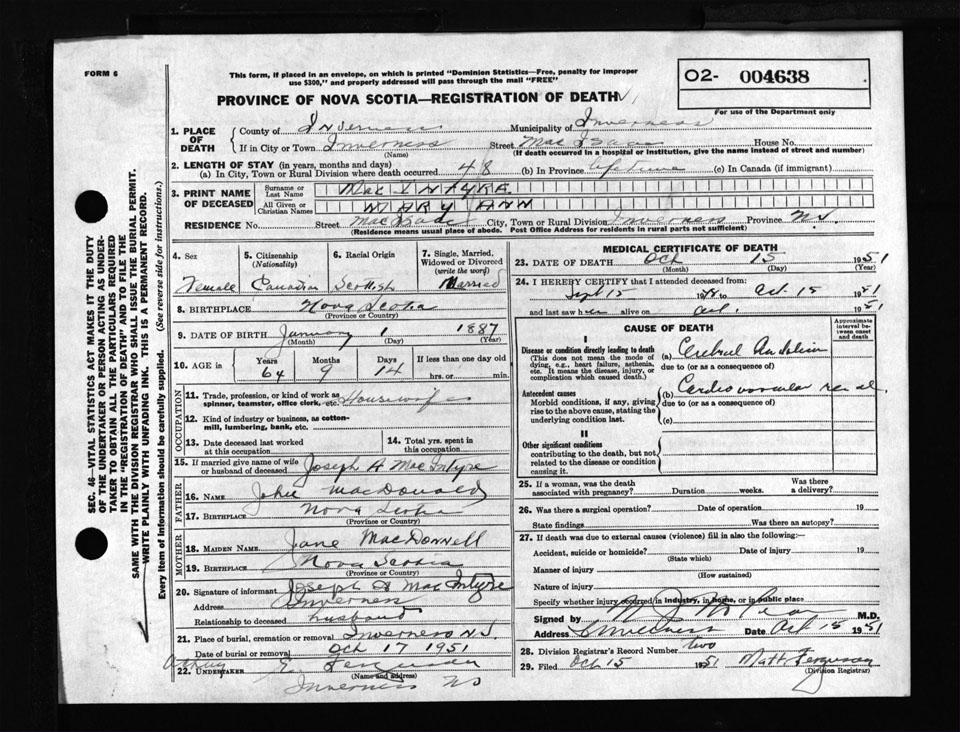 FORM 6
This form, if placed in an envelope, on which is printed "Dominion Statistics—Free, penalty for improper
use $300," and properly addressed will pass through the mail "FREE"
O2- 004638
PROVINCE OF NOVA SCOTIA—REGISTRATION OF DEATH
For use of the Department only
1. PLACE OF DEATH
County of Inverness Municipality of Inverness
If in City or Town Inverness Street House No.
(Name) (If death occurred in a hospital or institution, give the name instead of street and number)
2. LENGTH OF STAY (in years, months and days)
(a) In City, Town or Rural Division where death occurred 48 (b) In Province (c) In Canada (if immigrant)
3. PRINT NAME OF DECEASED
Surname or Last Name MacINTYRE
All Given or Christian Names MARY ANN
RESIDENCE No. Street City, Town or Rural Division Inverness Province N.S.
(Residence means usual place of abode. Post Office Address for residents in rural parts not sufficient)
4. Sex 5. Citizenship (Nationality) 6. Racial Origin 7. Single, Married, Widowed or Divorced (write the word)
Female Canadian Scottish Married
8. BIRTHPLACE Nova Scotia
(Province or Country)
9. DATE OF BIRTH January 1 1887
(Month) (Day) (Yrs.)
10. AGE in Years Months Days If less than one day old
64 9 14 hrs. or min.
OCCUPATION
11. Trade, profession, or kind of work as
spinner, teamster, office clerk, etc. Housewife
12. Kind of industry or business, as cotton-
mill, lumbering, bank, etc.
13. Date deceased last worked
at this occupation
14. Total yrs. spent in
this occupation
15. If married give name of wife
or husband of deceased Joseph A MacIntyre
FATHER
16. NAME John MacDonald
17. BIRTHPLACE Nova Scotia
(Province or Country)
MOTHER
18. MAIDEN NAME Jane MacDonnell
19. BIRTHPLACE Nova Scotia
(Province or Country)
20. Signature of informant Joseph A MacIntyre
Address Inverness
Relationship to deceased husband
21. Place of burial, cremation or removal Inverness N.S.
Date of burial or removal Oct 17 1951
22. UNDERTAKER E. Ferguson
(Name and address)
Inverness NS
MEDICAL CERTIFICATE OF DEATH
23. DATE OF DEATH Oct 15 1951
(Month) (Day) (Year)
24. I HEREBY CERTIFY that I attended deceased from:
Sept 15 19 to Oct 15 1951
and last saw her alive on 1951
CAUSE OF DEATH
Approximate interval between onset and death
I
Disease or condition directly leading to death
(This does not mean the mode of
dying, e.g., heart failure, asthenia,
etc. It means the disease, injury, or
complication which caused death.)
(a)
due to (or as a consequence of)
Antecedent causes
Morbid conditions, if any, giving
rise to the above cause, stating the
underlying condition last.
(b) Cardiovascular renal
due to (or as a consequence of)
(c)
II
Other significant conditions
contributing to the death, but not
related to the disease or condition
causing it.
25. If a woman, was the death
associated with pregnancy? Duration weeks. Was there
a delivery?
26. Was there a surgical operation? Date of operation 19
State findings Was there an autopsy?
27. If death was due to external causes (violence) fill in also the following:—
Accident, suicide or homicide? Date of injury 19
(State which)
Manner of injury
(How sustained)
Nature of injury
Specify whether injury occurred in industry, in home, or in public place
Signed by M.D.
Address Inverness Date Oct 15 1951
28. Division Registrar's Record Number two
29. Filed Oct 15 1951 Matt Ferguson
(Division Registrar)
SEC. 46—VITAL STATISTICS ACT MAKES IT THE DUTY
OF THE UNDERTAKER OR PERSON ACTING AS UNDER-
TAKER TO OBTAIN ALL THE PARTICULARS REQUIRED
IN THE "REGISTRATION OF DEATH" AND TO FILE THE
SAME WITH THE DIVISION REGISTRAR WHO SHALL ISSUE THE BURIAL PERMIT.
WRITE PLAINLY WITH UNFADING INK. THIS IS A PERMANENT RECORD.
Every item of information should be carefully supplied. (See reverse side for instructions.)